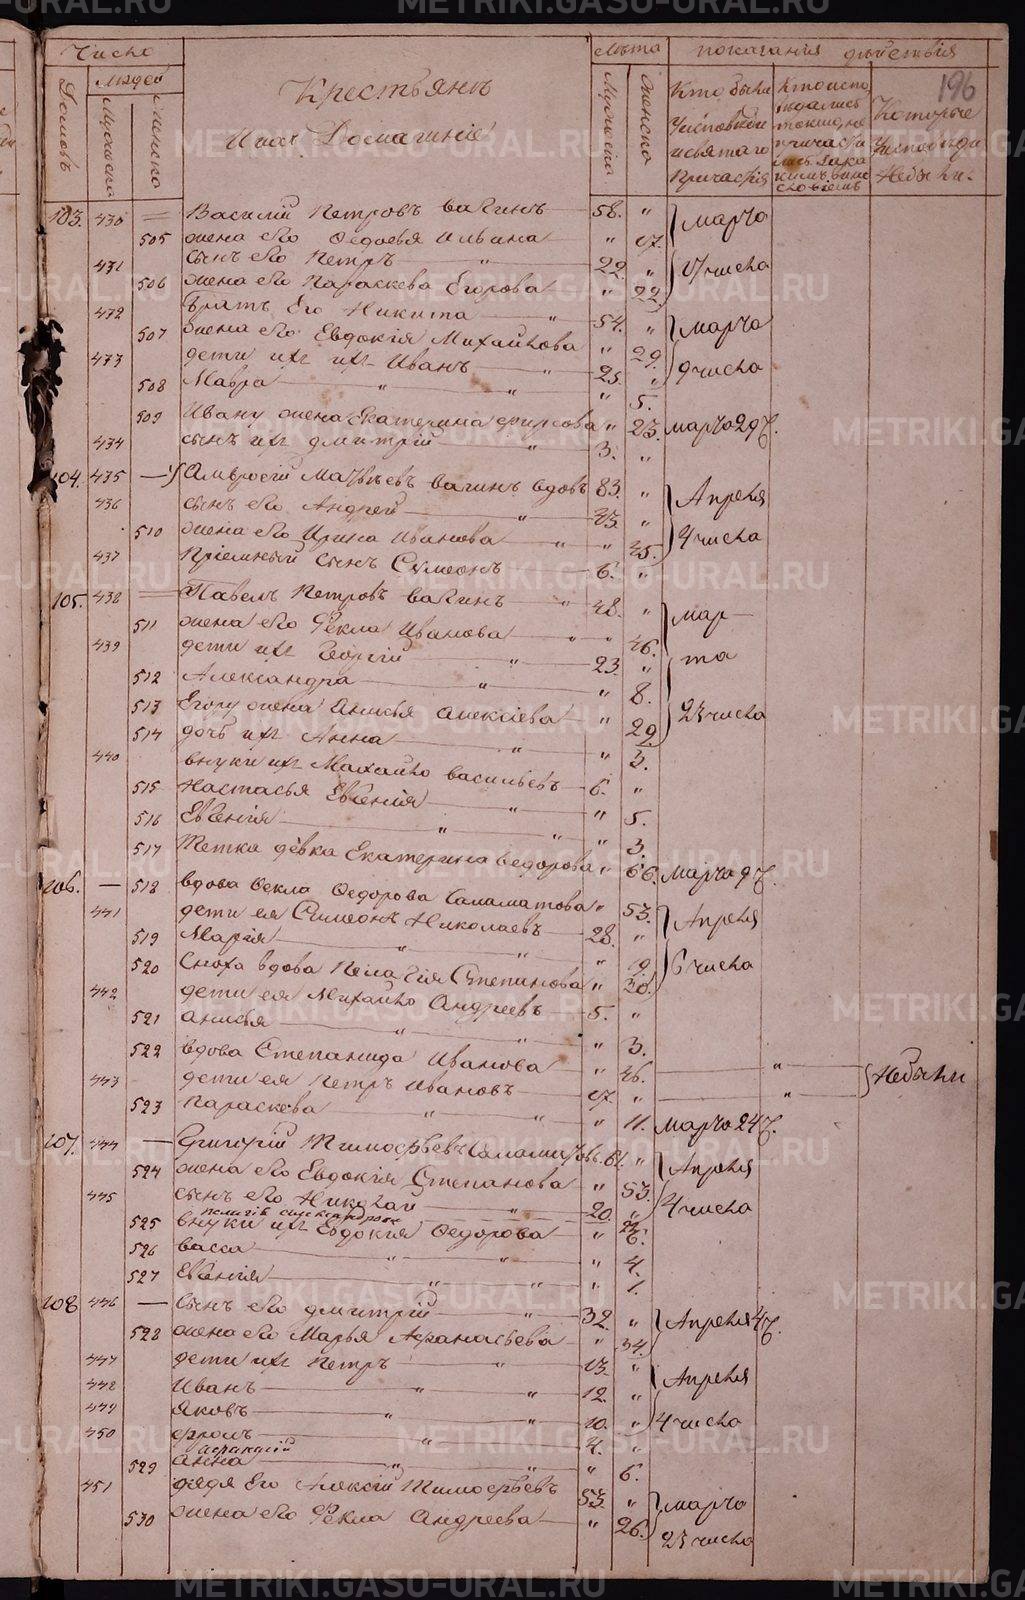 Число
Домовъ
Людей
Мужеска
Женска
Крестьянъ
И ихъ Домашніе
Лѣта
Мужеска
Женска
показанія дѣйствія
Кто были у исповѣди и святаго Причастія
Которые у исповѣди не были.
196
103. 430 — Василій Петровъ Вагинъ — 58. "
505 жена его Федосья Ильина — " 57.
431 сынъ его Петръ — 22. "
506 жена его Параскева Егорова — " 22.
} марта 17 числа
472 Братъ Его Никита — 54. "
507 жена его Евдокія Михайлова " 29.
473 дети ихъ Иванъ — 25. "
508 Мавра — " 5.
} марта 9 числа
509 Ивану жена Екатерина " 23. марта 29 ч.
434 сынъ ихъ дмитрій — 3. "
104. 435 — Амвросій Матвѣевъ Вагинъ вдовъ 83. "
436 сынъ его Андрей — 43. "
510 жена его Ирина Иванова — " 45.
437 Пріемный сынъ Симеонъ — 6. "
} Апреля 4 числа
105. 438 — Павелъ Петровъ Вагинъ — 48. "
511 жена его Фекла Иванова — " 46.
439 дети ихъ Георгій — 23. "
512 Александра — " 8.
513 Егору жена Анисья Алексіева — " 29.
} мар-та 23 числа
514 дочь ихъ Анна — " 3.
440 внуки ихъ Михайло Васильевъ — 6. "
515 Настасья Евгенія — " 5.
516 Евгенія — " 3.
517 Тетка девка Екатерина Федорова " 66. марта 9 ч.
106. — 518 вдова Фекла Федорова Саламатова " 53.
441 дети ея Симеонъ Николаевъ — 28. "
519 Марія — " 19.
520 Сноха вдова Пелагія Степанова " 30.
} Апреля 6 числа
442 дети ея Михайло Андреевъ — 5. "
521 анисья — " 3.
522 вдова Степанида Иванова — " 46. — " —
443 дети ея Петръ Ивановъ — 17. " — " —
} Небыли
523 Параскева — " 11. марта 24 ч.
107. 444 — Григорій Тимофѣевъ Саламатовъ 61. "
524 жена его Евдокія Степанова — " 53.
445 сынъ его Николай — 20. "
} Апреля 4 числа
525 внуки ихъ Евдокія Федорова — " 6.
526 васса — " 4.
527 Евгенія — " 1.
108 446 — сынъ его дмитрій — 32. "
528 жена его Марья Афанасьева — " 34.
} Апреля 4 ч.
447 дети ихъ Петръ — 13. "
448 Иванъ — 12. "
449 Яковъ — 10. "
} Апреля 4 числа
450 фролъ — 4. "
529 анна — " 6.
451 дядя Его Алексій Тимофѣевъ 53. "
530 жена его Фекла Андреева — " 26.
} марта 23 числа
METRIKI.GASO-URAL.RU